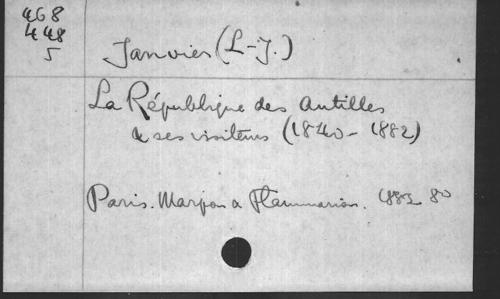 468
448
5
Janvier (L-J.)
La République des Antilles
& ses visiteurs (1840-1882)
Paris. Marpon & Flammarion. 1883 8o